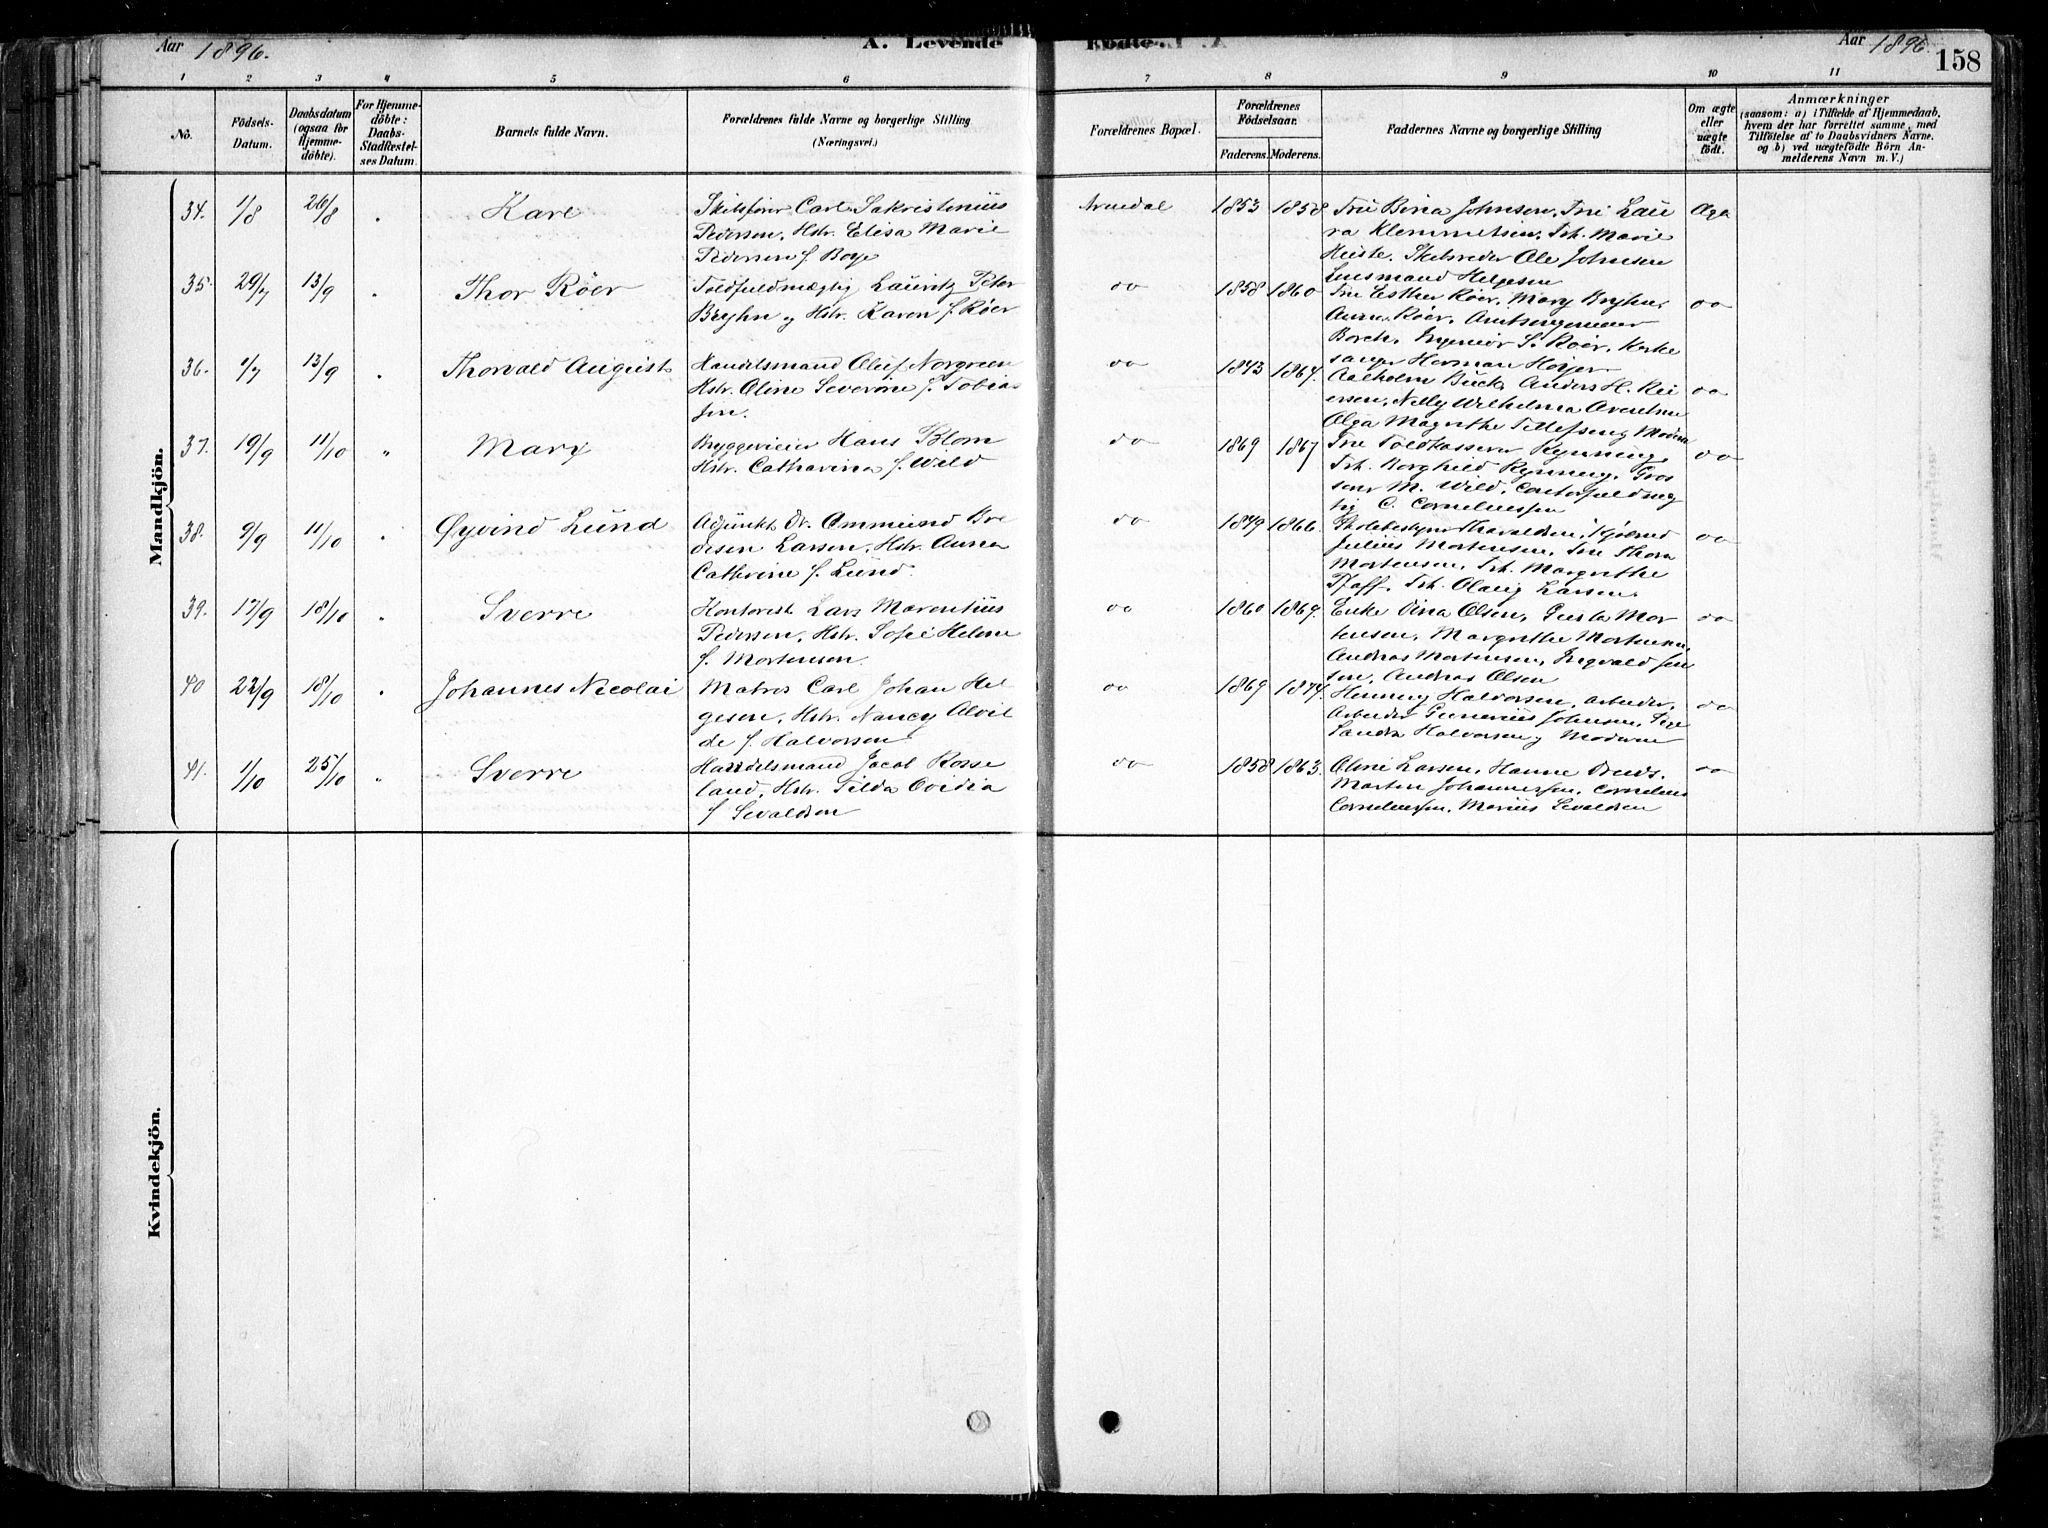 Aar 1896.
A. Levende
Födte. A
Aar 1896.
158
1 2 3 4 5 6 7 8 9 10 11
No.
Födsels-
Datum.
Daabsdatum
(ogsaa for
Hjemme-
döbte).
For Hjemme-
döbte:
Daabs-
Stadfæstel-
ses Datum.
Barnets fulde Navn.
Forældrenes fulde Navne og borgerlige Stilling
(Næringsvei.)
Forældrenes Bopæl.
Forældrenes
Födselsaar.
Faderens. Moderens.
Faddernes Navne og borgerlige Stilling
Om ægte
eller
uægte
födt.
Anmærkninger
(saasom: a) i Tilfælde af Hjemmedaab,
hvem der har forrettet samme, med
Tilföielse af to Daabsvidners Navne,
og b) ved uægtefödte Börn An-
melderens Navn m. V.)
Mandkjön.
34. 1/8 26/8 " Kare
Skibsfører Carl Sakristinius
Pedersen, Hstr. Elisa Marie
Pedersen f. Boye
Arendal 1853 1858
Fru Bina Johnsen, Fru Lau
ra Klemmetsen, Frk. Marie
Heiste, Skibsreder Ole Johnsen
Lensmand Helgesen
Ægte
35. 29/7 13/9 " Thor Röer
Toldfuldmægtig Lauritz Peter
Bryhn og Hstr. Karen f. Röer
do 1858 1860
Fru Esther Röer, Mary Bryhn,
Anna Röer, Amtsingeniør
Borch, Ingeniør S. Röer, Kirke
sanger Herman Höyer
do
36. 1/7 13/9 " Thorvald August
Handelsmand Oluf Norgreen
Hstr. Oline Severine f. Tobias
sen.
do 1873 1864.
Aalholm Buck, Anders H. Rei
ersen, Nelly Wilhelmа Arentsen
Olga Magrethe Tellefsen og Moderen
do
37. 19/9 11/10 " Marx
Bryggerieier Hans Blom
Hstr. Catharina f. Wild
do 1869 1867
Fru Toldkasserer Rynning,
Frk. Borghild Rynning, Gros
serer M. Wild, Contorfuldmæg
tig C. Corneliussen
do
38. 9/9 11/10 " Øyvind Lund
Adjunkt Dr. Ammund Bre
desen Larsen, Hstr. Anna
Cathrine f. Lund.
do 1849 1866.
Skolebestyrer Haraldsen,
Julius Mortensen, Fru Thora
Mortensen, Frk. Margrethe
Pfaff, Frk. Olaug Larsen.
do
39. 17/9 18/10 " Sverre
Kontorist Lars Marentius
Pedersen, Hstr. Sofie Helene
f. Mortensen.
do 1860 1869.
Enke Dina Olsen, Gusta Mor
tensen, Margrethe Mortensen,
Andreas Mortensen, Ingvald Jen
sen, Andreas Olsen
do
40 22/9 18/10 " Johannes Nicolai
Matros Carl Johan Hel-
gesen, Hstr. Nancy Alvil
de f. Halvorsen
do 1869 1874.
Henning Halvorsen, arbeider,
Arbeider Gunerius Johnsen, Pige
Sandra Halvorsen og Moderen
do
41. 1/10 25/10 " Sverre
Handelsmand Jacob Rosse
land, Hstr. Tilda Ovidia
f. Sevaldsen
do 1858 1863.
Oline Larsen, Hanne
Martin Johannessen, Cornelius
Corneliussen, Marius Sevaldsen
do
Kvindekjön.